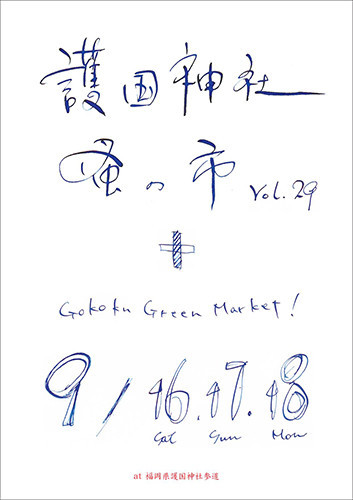 護国神社
蚤の市 Vol.29
+
Gokoku Green Market!
9/16.17.18
Sat Sun Mon
at 福岡県護国神社参道